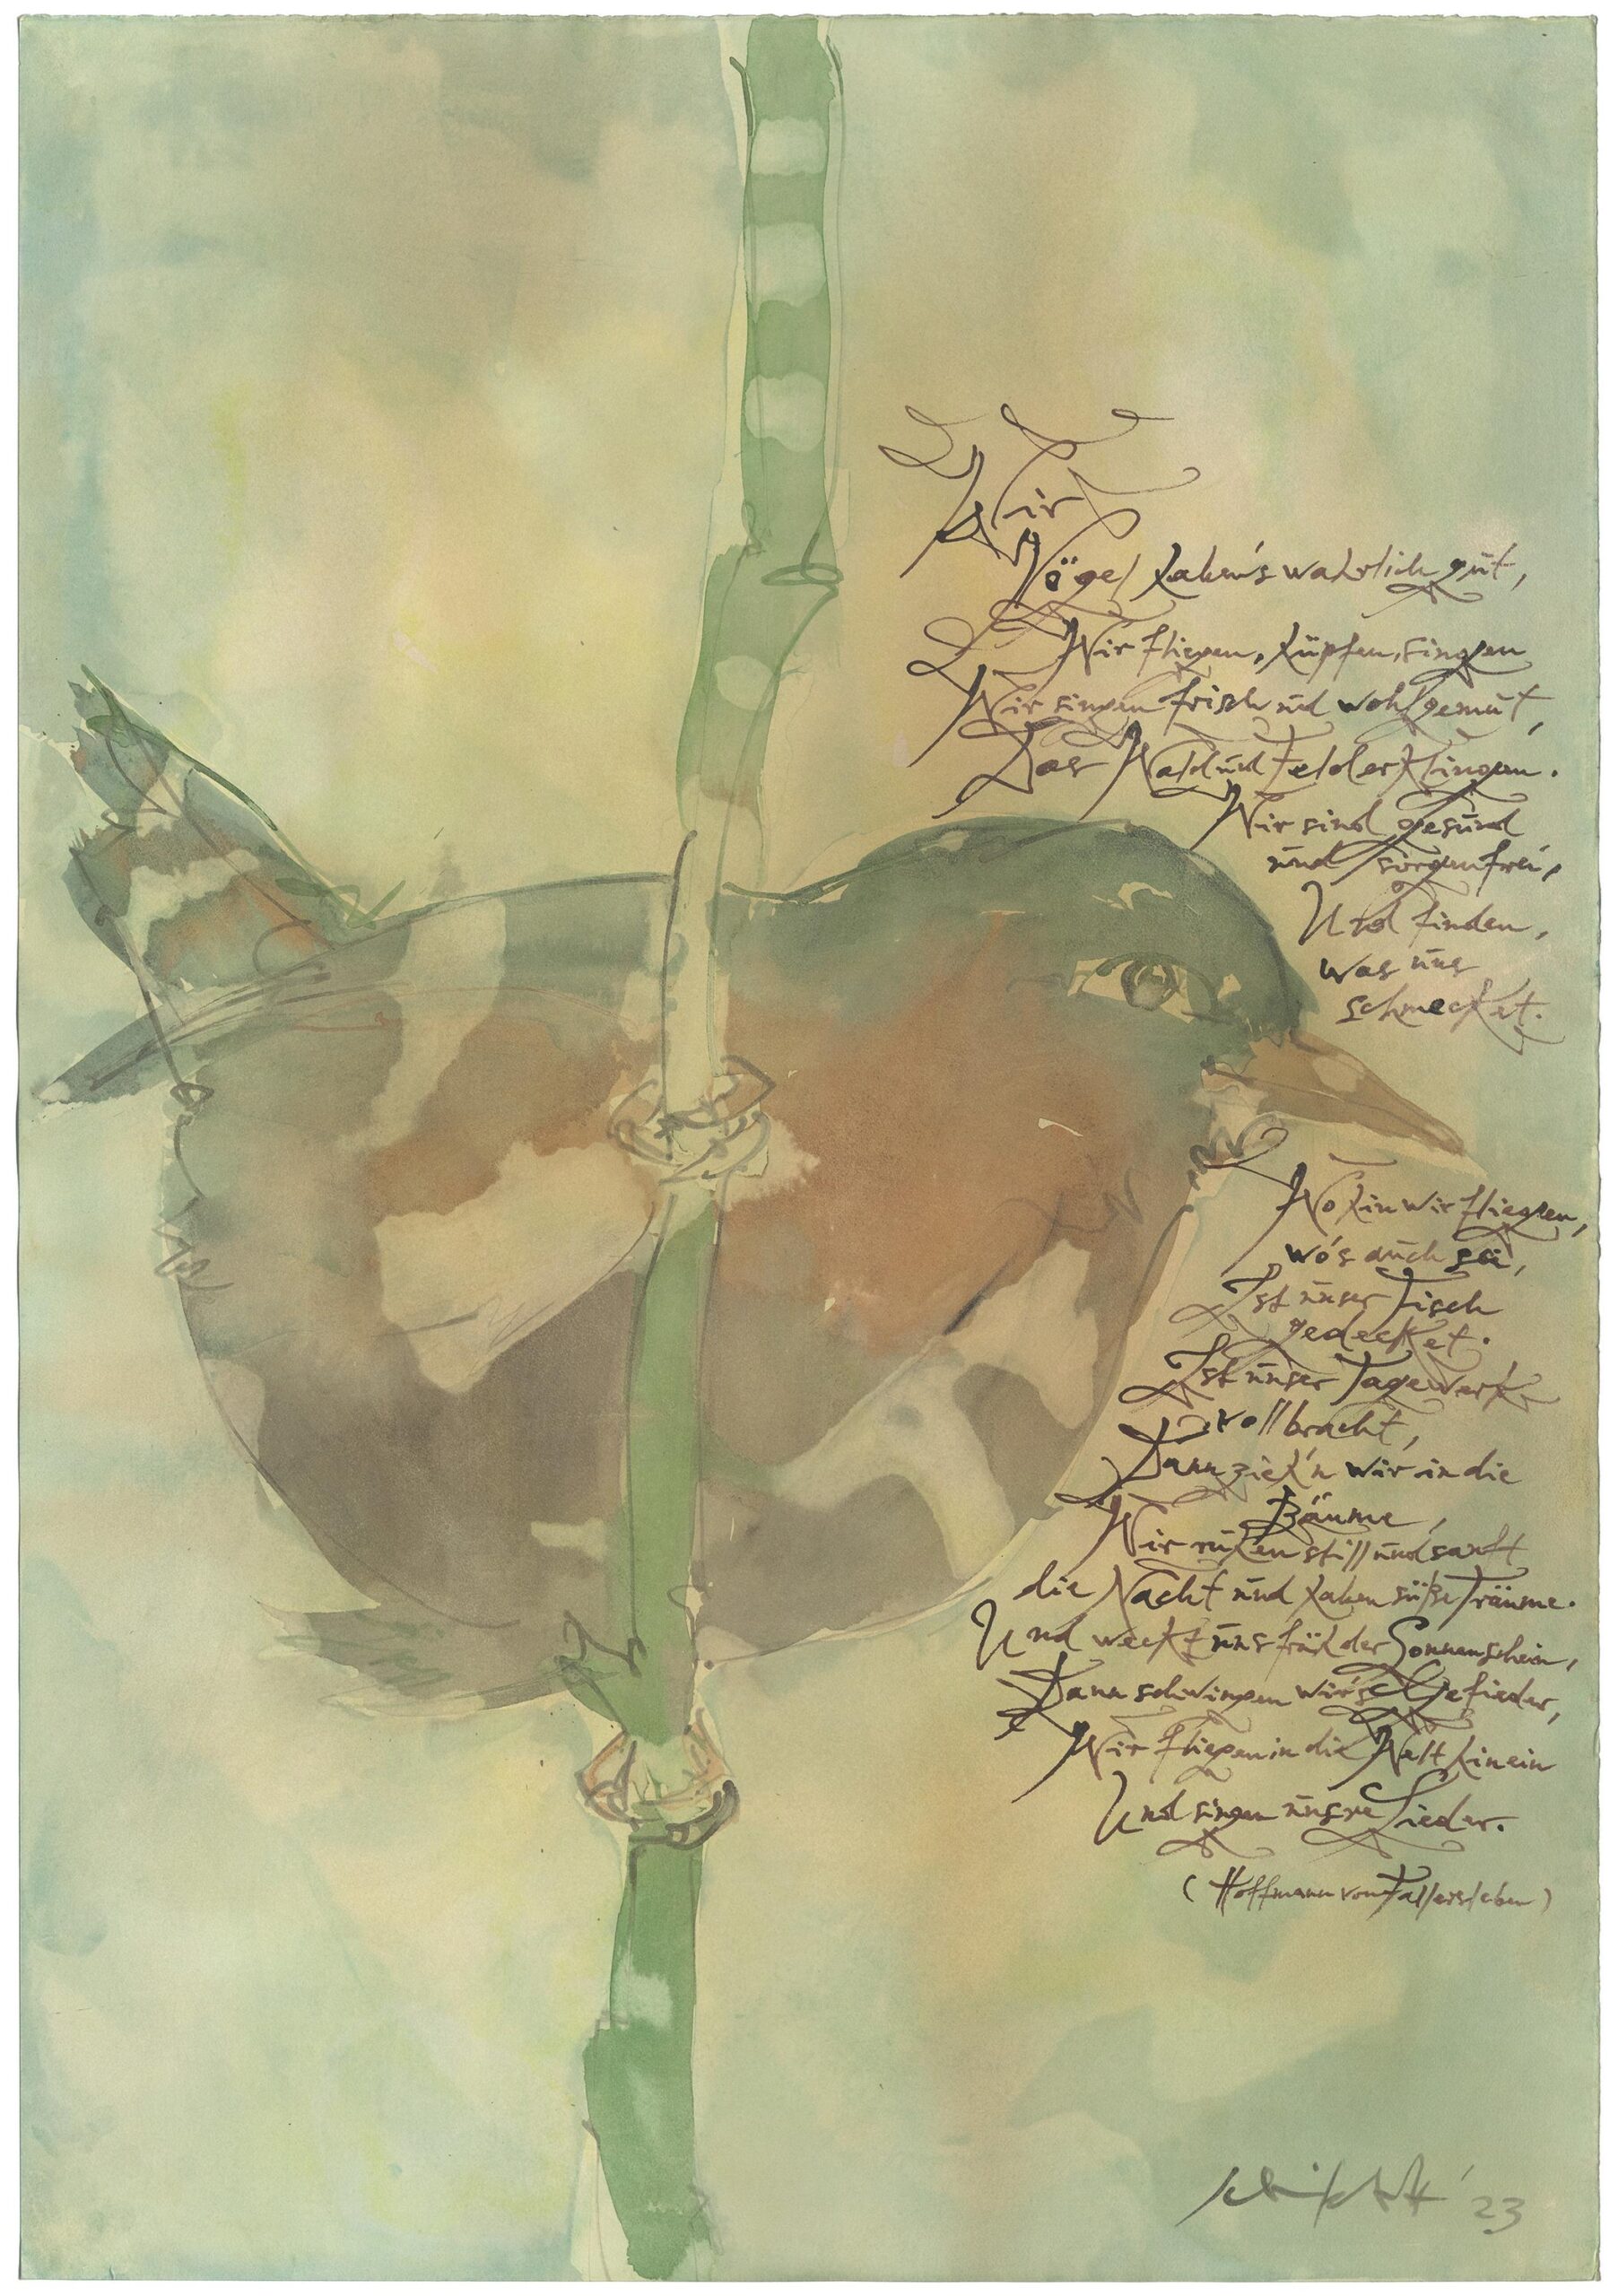 Wir
Vögel haben's wahrlich gut,
Wir fliegen, hüpfen, singen
Wir singen frisch und wohlgemut,
Das Wald und Feld erklingen.
Wir sind gesund
und sorgenfrei,
Und finden,
was uns
schmecket.
Wohin wir fliegen,
wo's auch sei,
Ist unser Tisch
gedecket.
Ist unser Tagewerk
vollbracht,
Dann zieh'n wir in die
Bäume,
Wir ruhen still und sanft
die Nacht und haben süße Träume.
Und weckt uns früh der Sonnenschein,
Dann schwingen wir's Gefieder,
Wir fliegen in die Welt hinein
Und singen unsre Lieder.
(Hoffmann von Fallersleben)
'23